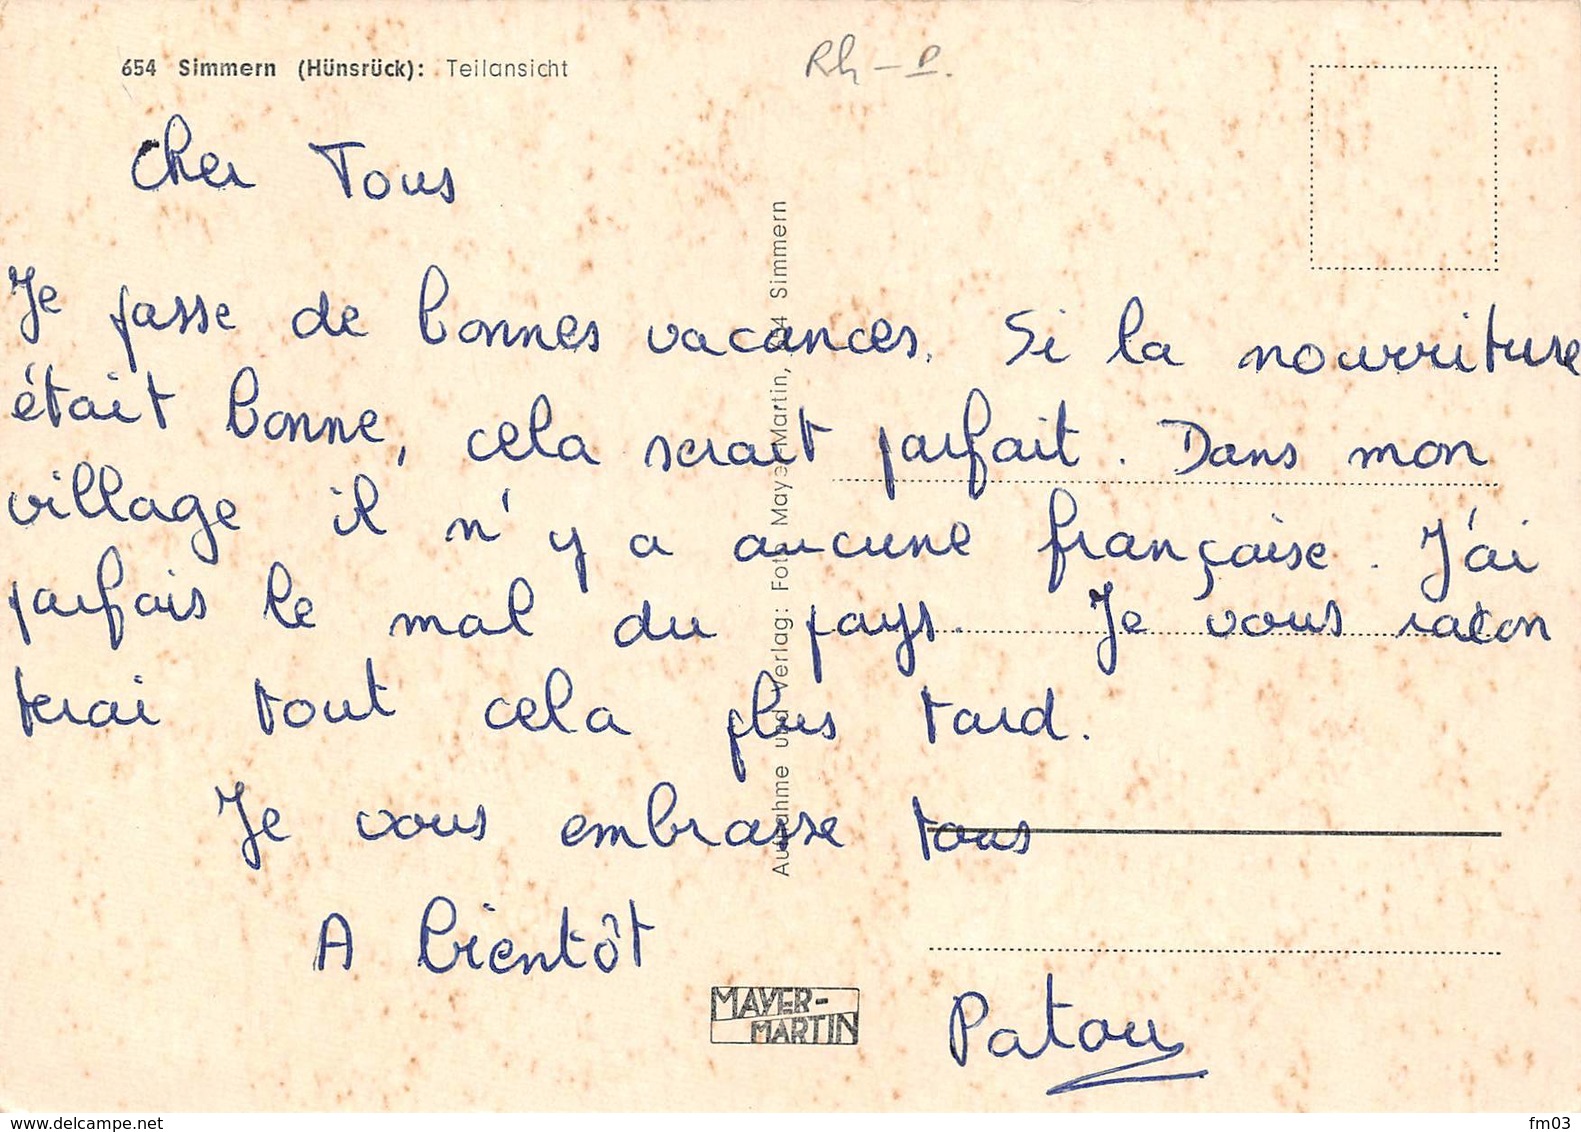 654 Simmern (Hünsrück): Teilansicht
Rh - P.
Cher Tous
Je passe de bonnes vacances. Si la nourriture
était bonne, cela serait parfait. Dans mon
village il n'y a aucune française. J'ai
parfois le mal du pays. Je vous racon
terai tout cela plus tard.
Je vous embrasse tous
A bientôt
Patou
Aufnahme und Verlag: Foto Mayer-Martin, 654 Simmern
MAYER-
MARTIN
www.delcampe.net
fm03